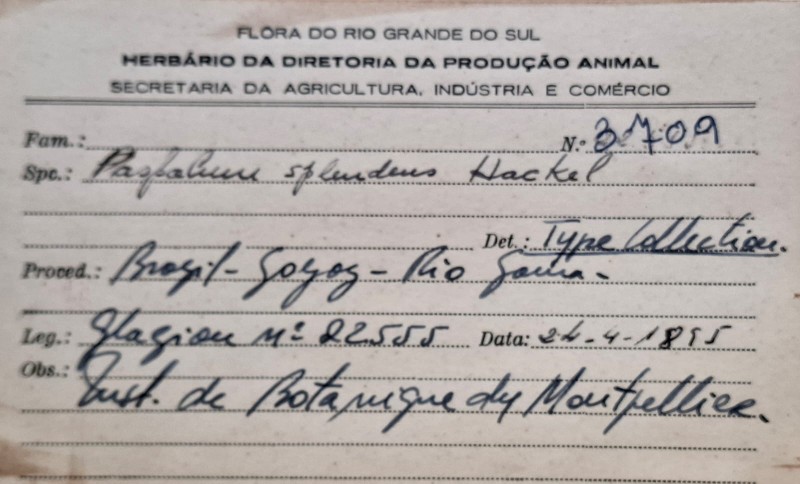 FLORA DO RIO GRANDE DO SUL
HERBÁRIO DA DIRETORIA DA PRODUÇÃO ANIMAL
SECRETARIA DA AGRICULTURA, INDÚSTRIA E COMÉRCIO
Fam.: N.º 3709
Spc.: Paspalum splendens Hackel
Det.: Type Collection.
Proced.: Brazil - Goyaz - Rio Gama -
Leg.: Glaziou nº 22555 Data: -4-1895
Obs.: Inst. de Botanique de Montpellier.